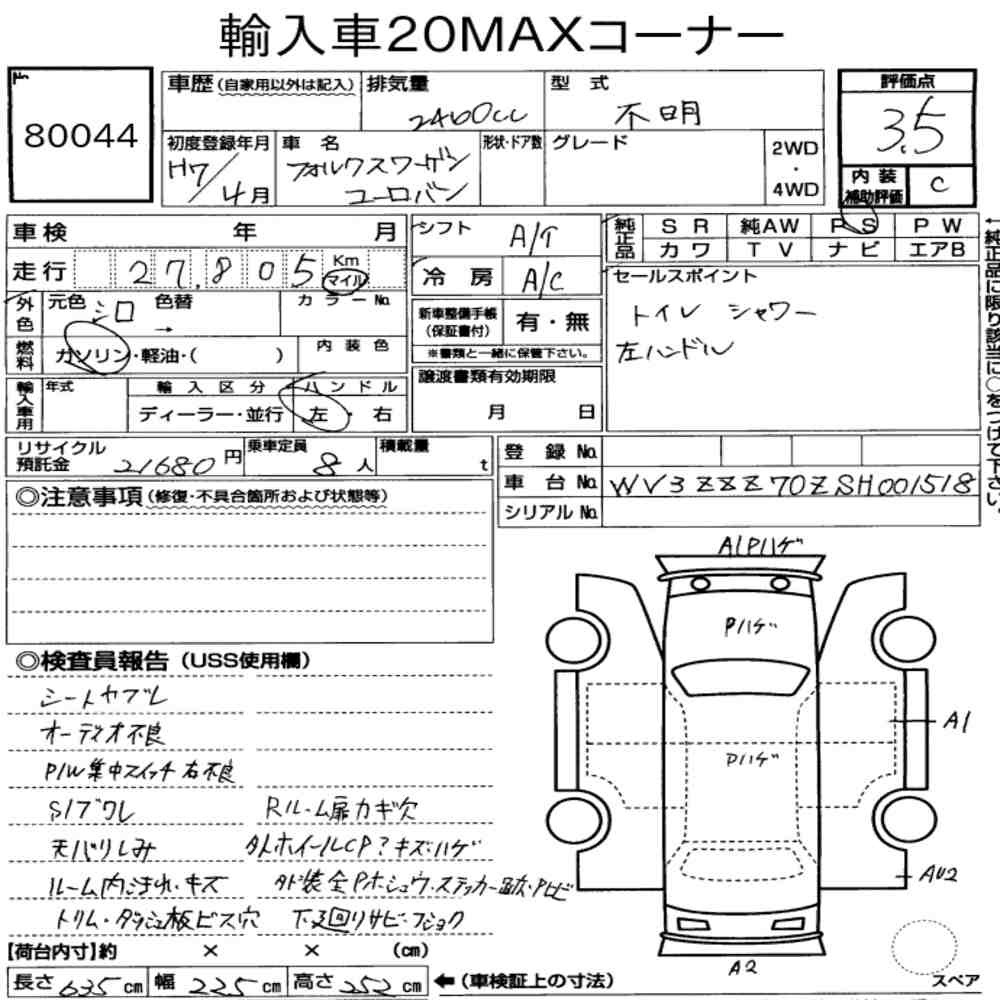 輸入車20MAXコーナー
No. 80044
車歴 (自家用以外は記入) 排気量 2460cc 型式 不明
評価点 3.5
初度登録年月 H7/4月 車名 フォルクスワーゲン ユーロバン 形状・ドア数 グレード 2WD・4WD
内装補助評価 C
車検 年 月
走行 27,805 Km マイル
外色 元色 シロ 色替 → カラーNo.
燃料 ガソリン・軽油・( ) 内装色
輸入車用 年式 輸入区分 ディーラー・並行 ハンドル 左・右
シフト A/T
冷房 A/C
新車整備手帳(保証書付) 有・無
※書類と一緒に保管下さい。
譲渡書類有効期限
月 日
純正品 SR 純AW PS PW
カワ TV ナビ エアB
←純正品に限り該当に○をつけて下さい。
セールスポイント
トイレ シャワー
左ハンドル
リサイクル預託金 21680円 乗車定員 8人 積載量 t
登録No.
車台No. WV3ZZZ70ZSH001518
シリアルNo.
◎注意事項 (修復・不具合箇所および状態等)
◎検査員報告 (USS使用欄)
シートヤブレ
オーディオ不良
P/W集中スイッチ右不良
S/ブワレ Rルーム扉カギ欠
天バリしみ 外ホイールCP?キズ・ハゲ
ルーム内こすれ・キズ 外装全Pホシュウ・ステッカー跡・Pヒビ
トリム・ダッシュ板ビス穴 下廻りサビ・フショク
A1Pハゲ
Pハゲ
Pハゲ
A1
AU2
A2
スペア
【荷台内寸】約 × × (cm)
長さ 635 cm 幅 225 cm 高さ 252 cm ←(車検証上の寸法)